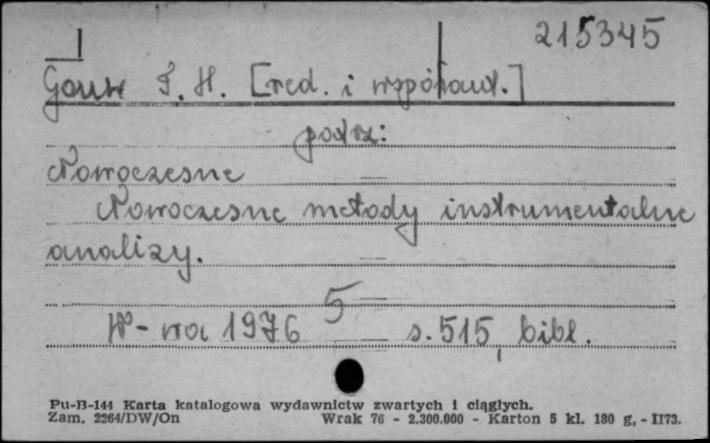 215345
Gouw T. H. [red. i współaut.]
podrz:
Nowoczesne
Nowoczesne metody instrumentalne
analizy.
5
W-wa 1976 s. 515, bibl.
Pu-B-144 Karta katalogowa wydawnictw zwartych i ciągłych.
Zam. 2264/DW/On Wrak 76 - 2.300.000 - Karton 5 kl. 180 g. - II73.